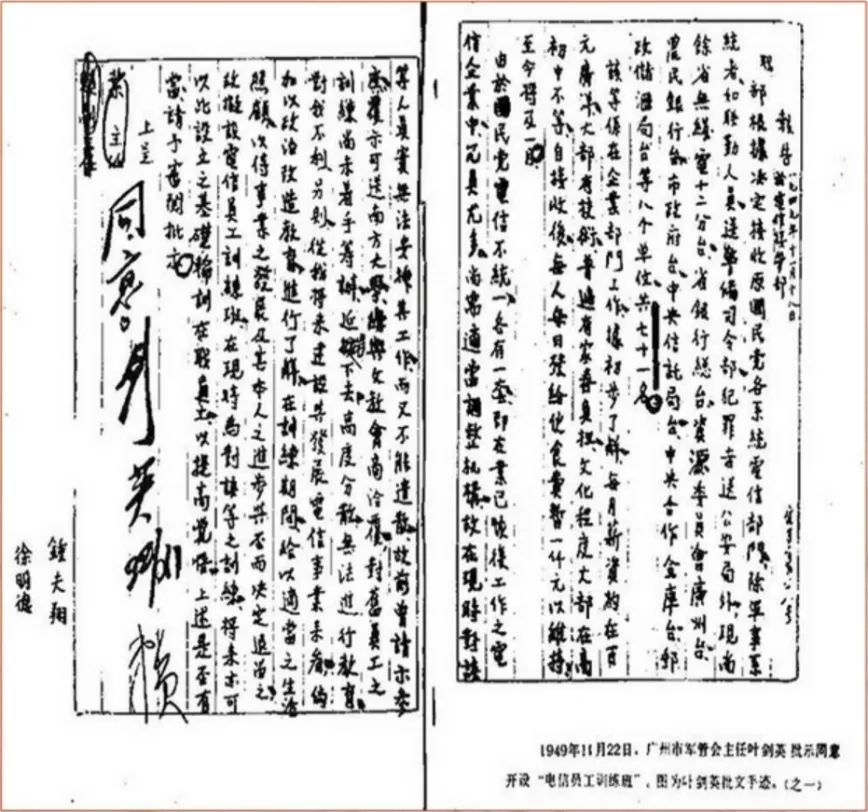 報告 一九四九年十一月十八日
於電信接管部
職部根據决定接收原國民党各系統電信部門、除軍事系
統者、如聯勤人員送警備司令部犯罪者送公安局外、現尚
餘省無綫電十二分台、省銀行總台、資源委員會廣州台、
農民銀行台、市政府台、中央信託局台、中央合作金庫台、郵
政儲滙局台等八个單位共七十一名。
該等係在企業部門工作、據初步了解、每月薪資約在百
元 大部有技術、普遍有家眷負担、文化程度大部在高
初中不等、自接收後、每人每日發給伙食費暫一仟元以維持
至今將及一月。
由於國民党電信不統一、各有一套、即在業已恢復工作之電
信企業中冗員尤多、尚需適當調整机構、故在現時對該
等人員實無法安插其工作、而又不能遣散、故前曾請示參
座覆示可送南方大學經與文教會商洽覆、對舊員工之
訓練尚未着手籌辦、近 下去高度分散無法進行教育
對我不利、另則從我將来建設與發展電信事業来看、仍
加以政治改造教育、進行了解、在訓練期間給以適當之生活
照顧、以待事業之發展及其本人之進步與否而決定退留之
故擬設電信員工訓練班、在現時為對該等之訓練、將来亦可
以此設立之基礎輪訓在職員工、以提高覺悟、上述是否有
當請予審閱批示。
上呈
葉主任
同意。剑英
賴
鍾夫翔
徐明德
1949年11月22日，广州市军管会主任叶剑英批示同意
开设“电信员工训练班”，图为叶剑英批文手迹。（之一）